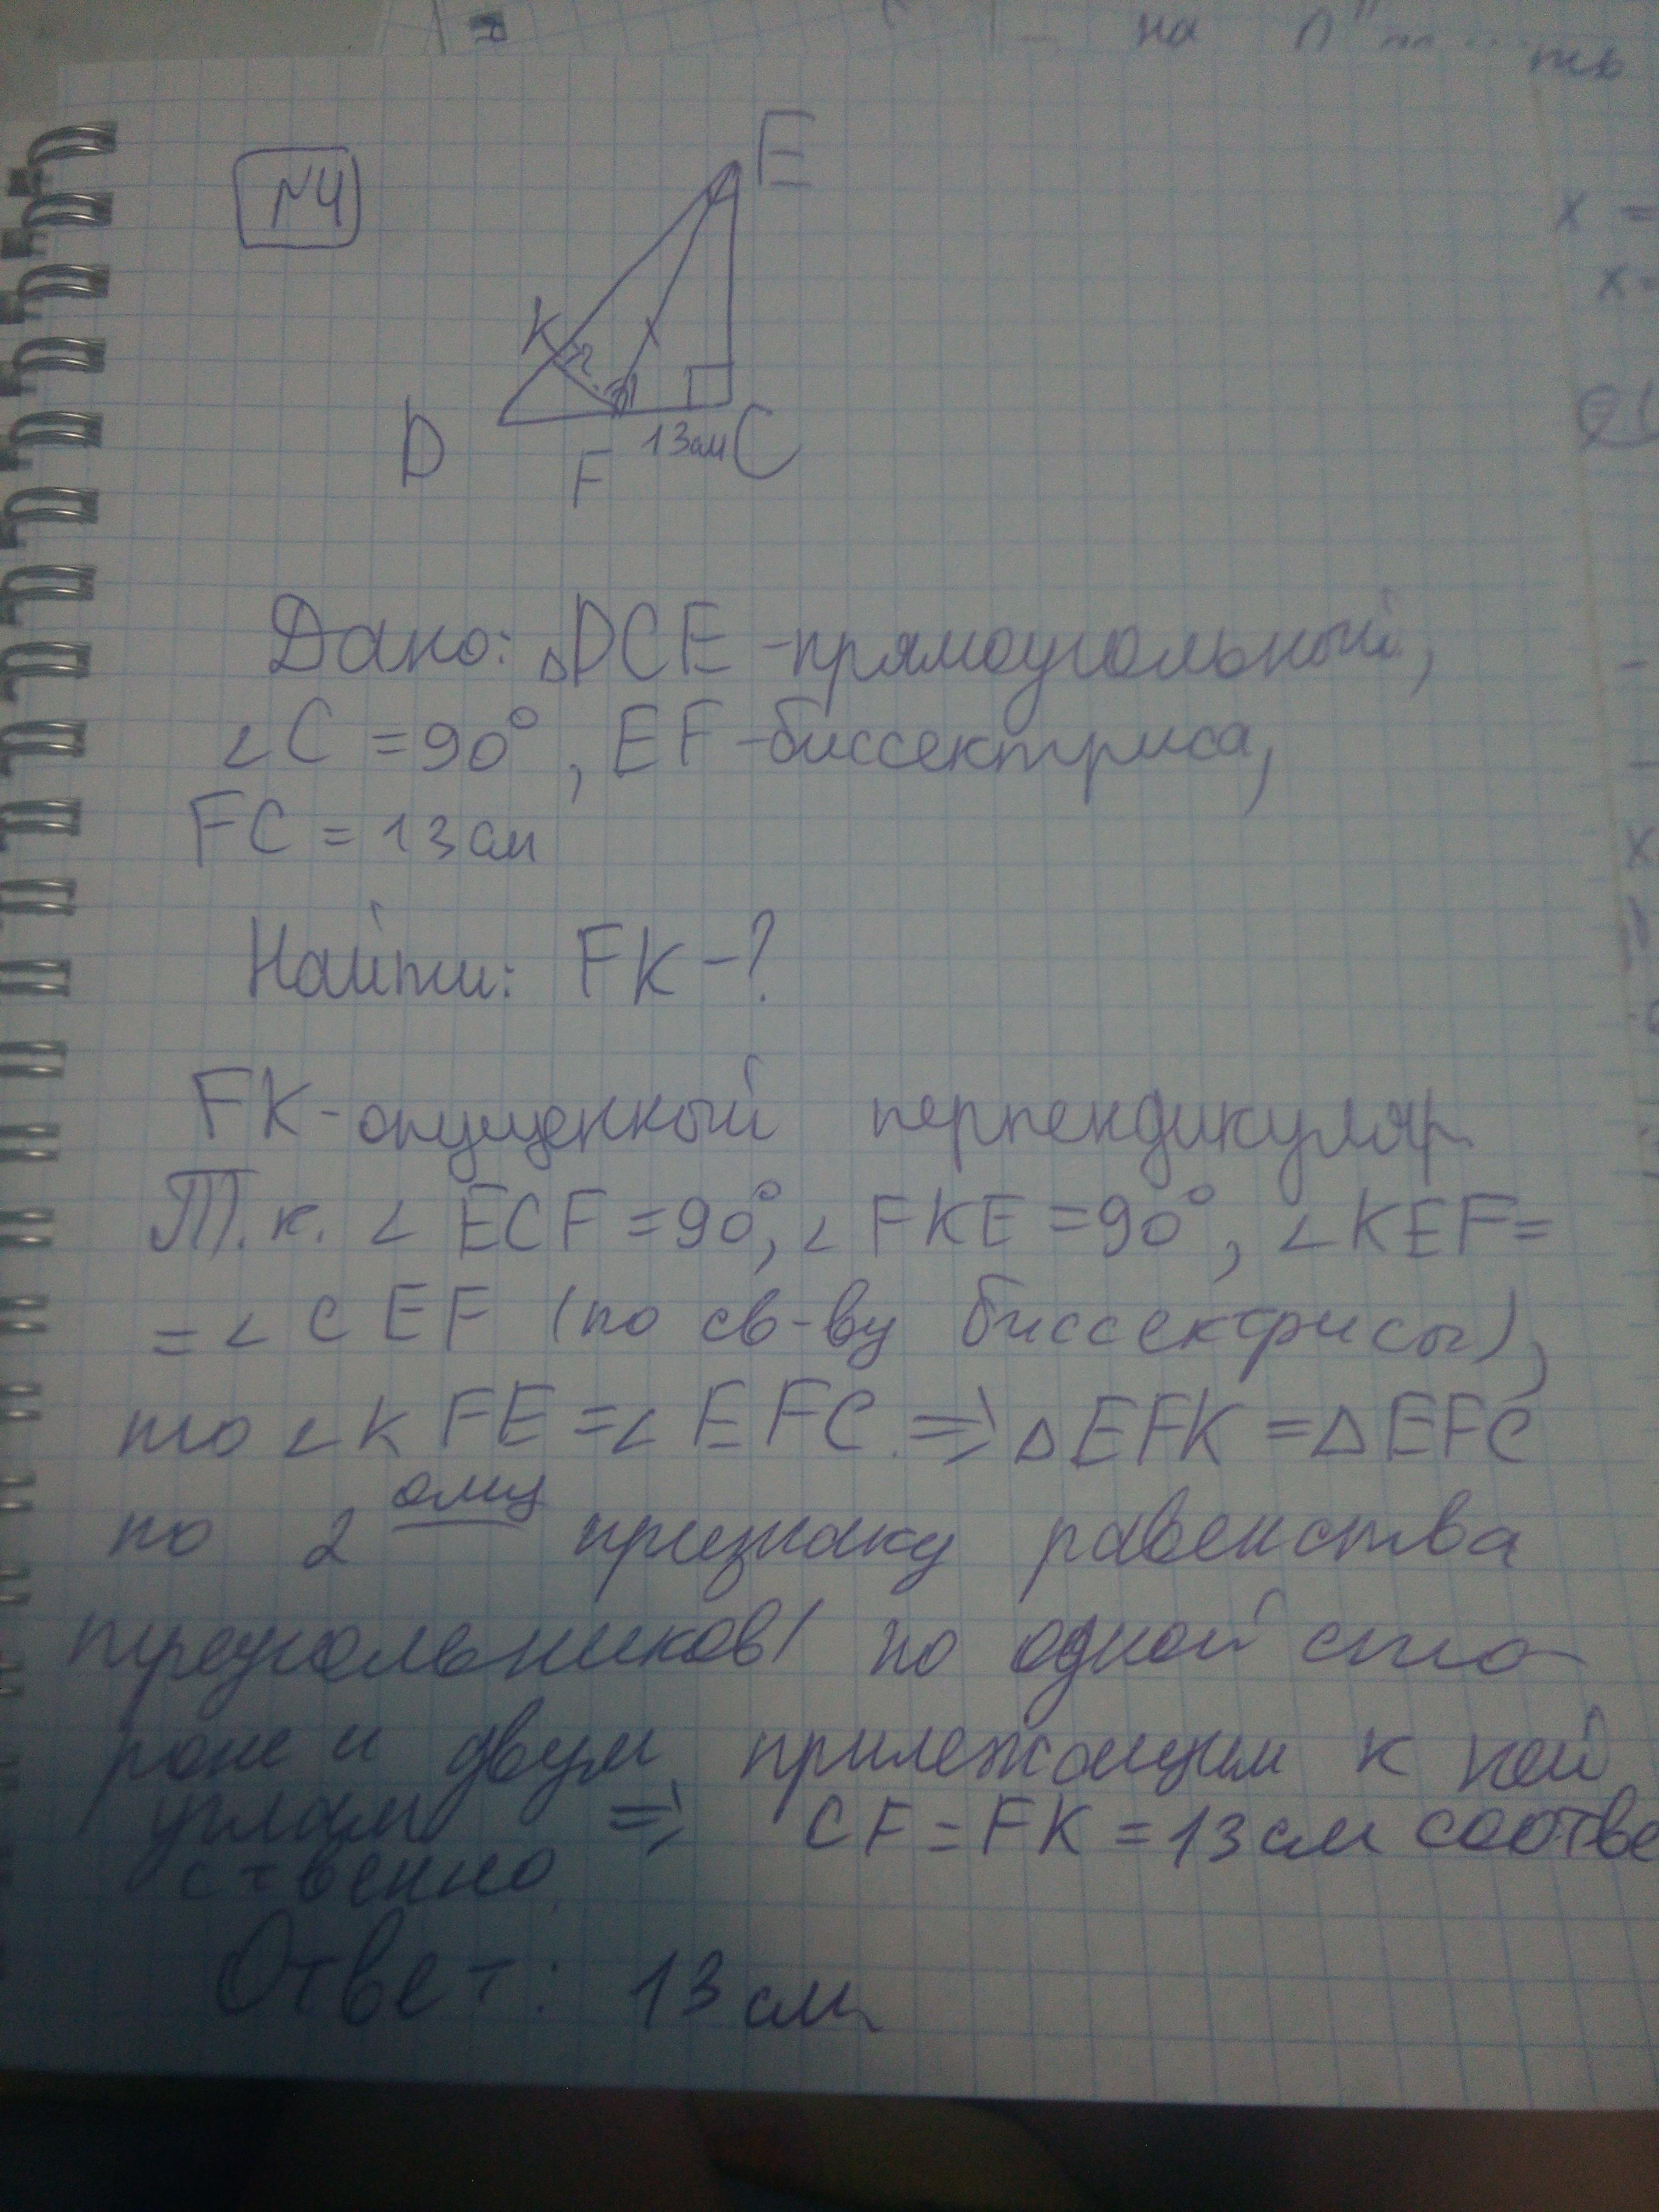 на
ть
№4
E
K
D
F
13см
C
x =
x =
Дано: △DCE - прямоугольный,
∠C = 90°, EF - биссектриса,
FC = 13 см
x
Найти: FK - ?
FK - опущенный перпендикуляр
Т.к. ∠ECF = 90°, ∠FKE = 90°, ∠KEF =
= ∠CEF (по св-ву биссектрисы),
то ∠KFE = ∠EFC. ⇒ △EFK = △EFC
по 2 ому признаку равенства
треугольников/ по одной сто-
роне и двум прилежащим к ней
углам ⇒ CF = FK = 13 см соотве
ственно
Ответ: 13 см